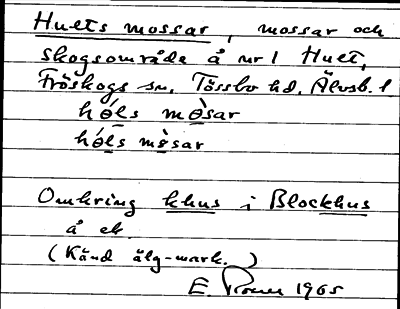 Huets mossar, mossar och
skogsområde å nr 1 Huet,
Fröskogs sn, Tössbo hd, Älvsb. l
hóls mòsar
hóls mòsar
Omkring khus i Blockhus
å ek.
(Känd älg-mark.)
E. 1965